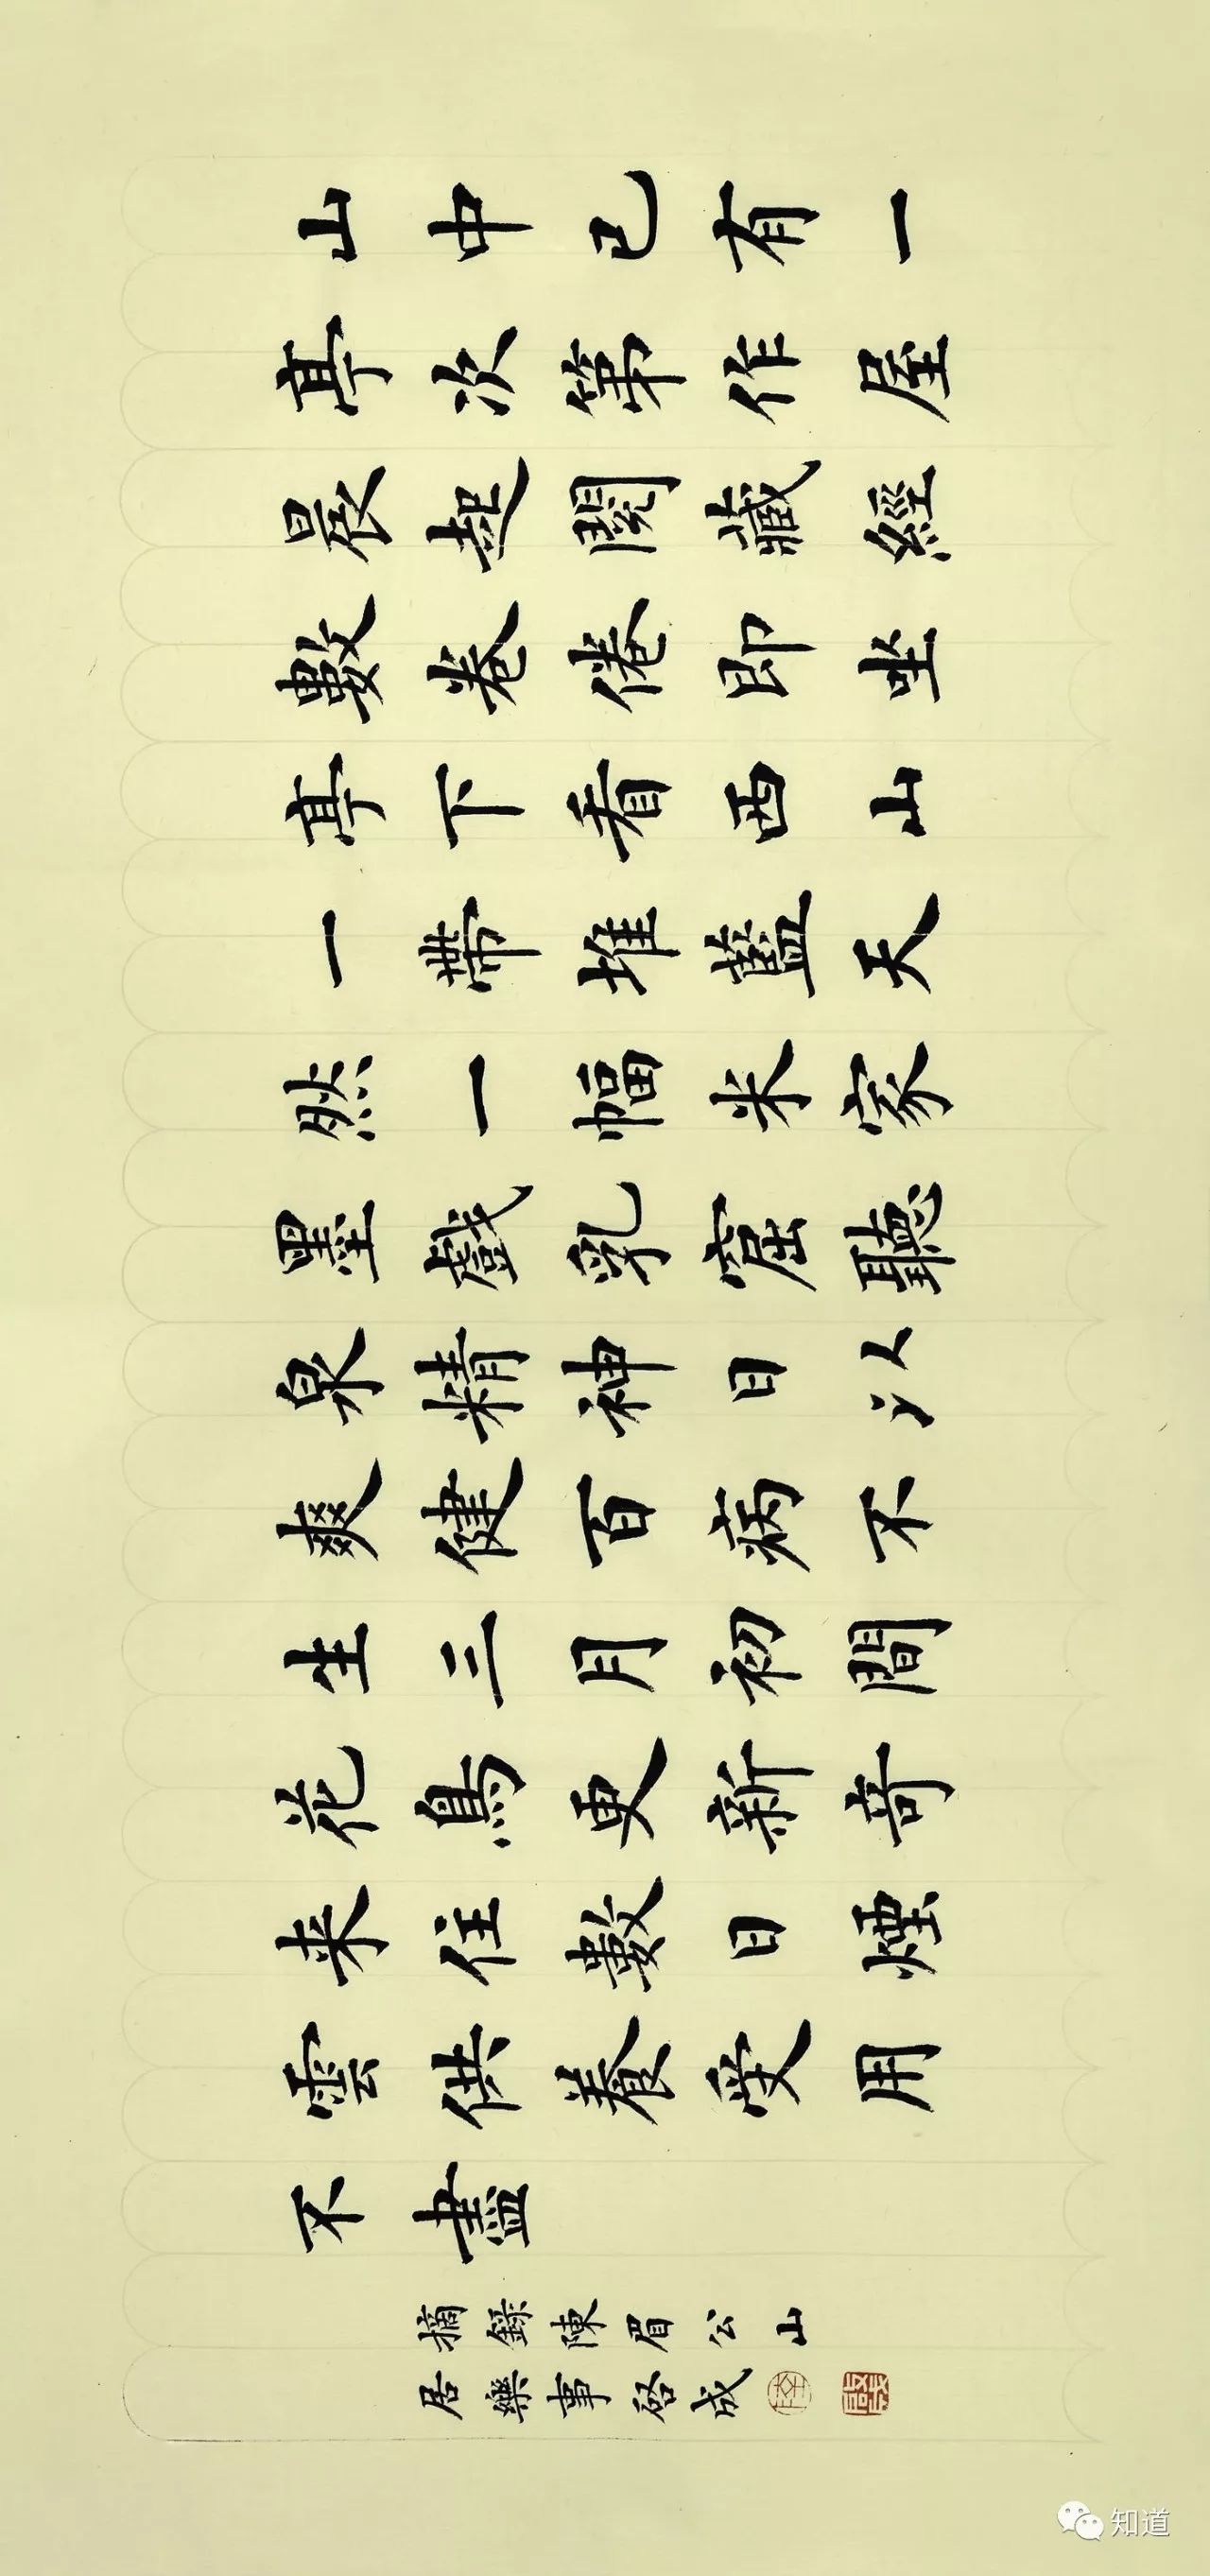 山中已有一
亭次第作屋
晨起閱藏經
數卷倦即坐
亭下看西山
一帶堆藍天
然一幅米家
墨戲乳窟聽
泉精神日以
爽健百病不
生三月初間
花鳥更新竒
来住數日煙
雲供養受用
不盡
摘錄陳眉公山
居樂事啓成
知道